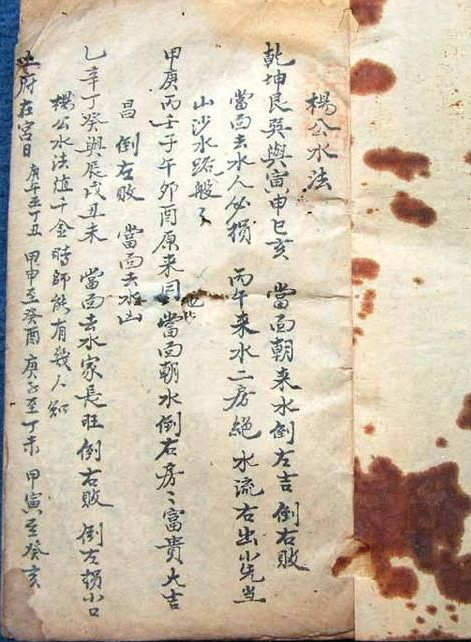 楊公水法
乾坤艮巽與寅申巳亥 當面朝来水倒左吉 倒右敗
當面去水人必損 丙午来水二房絶 水流右出小先当
山沙水路般々
甲庚丙壬子午卯酉原来同 當面朝水倒右房〻富貴大吉
昌 倒右敗 當面去水凶
乙辛丁癸與辰戌丑未 當面去水家長旺 倒右敗 倒左損小口
楊公水法值千金 時師能有幾人知
土府在宮日 庚午至丁丑 甲申至癸酉 庚子至丁未 甲寅至癸亥